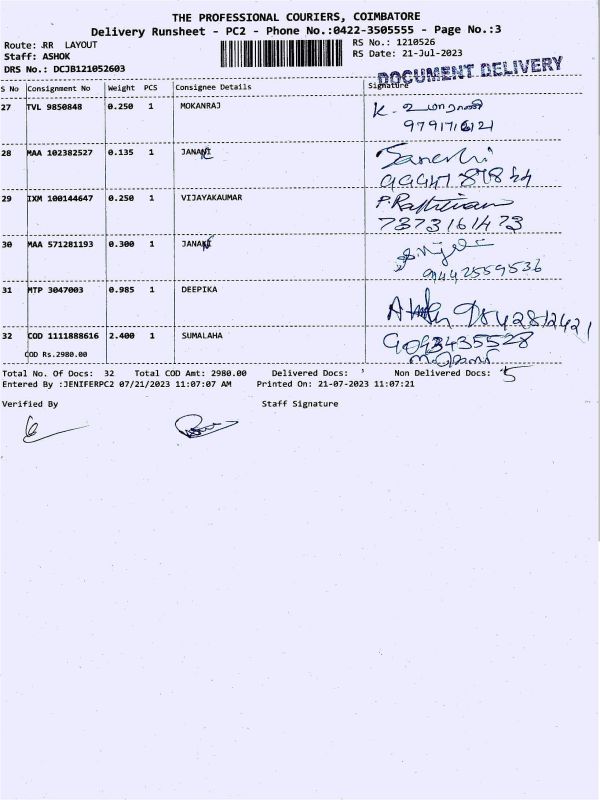 THE PROFESSIONAL COURIERS, COIMBATORE
Delivery Runsheet - PC2 - Phone No.:0422-3505555 - Page No.:3
Route: RR LAYOUT RS No.: 1210526
Staff: ASHOK RS Date: 21-Jul-2023
DRS No.: DCJB121052603 DOCUMENT DELIVERY
S No Consignment No Weight PCS Consignee Details Signature
27 TVL 9850848 0.250 1 MOKANRAJ K. உமாராணி
28 MAA 102382527 0.135 1 JANANI
29 IXM 100144647 0.250 1 VIJAYAKAUMAR
7373161473
30 MAA 571281193 0.300 1 JANANI
31 MTP 3047003 0.985 1 DEEPIKA
9842812421
32 COD 1111888616 2.400 1 SUMALAHA 9093435528
COD Rs.2980.00
Total No. Of Docs: 32 Total COD Amt: 2980.00 Delivered Docs: Non Delivered Docs: 5
Entered By :JENIFERPC2 07/21/2023 11:07:07 AM Printed On: 21-07-2023 11:07:21
Verified By Staff Signature